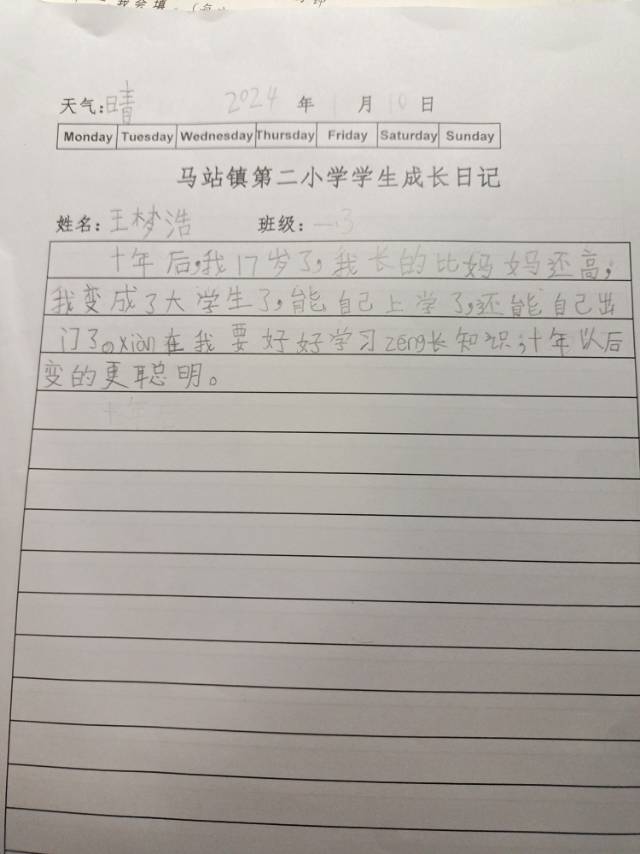 天气:晴 2024 年 月 10 日
Monday Tuesday Wednesday Thursday Friday Saturday Sunday
马站镇第二小学学生成长日记
姓名:王梦浩 班级:一.3
十年后,我17岁了,我长的比妈妈还高,
我变成了大学生了,能自己上学了,还能自己出
门了。xiàn在我要好好学习zēng长知识,十年以后
变的更聪明。